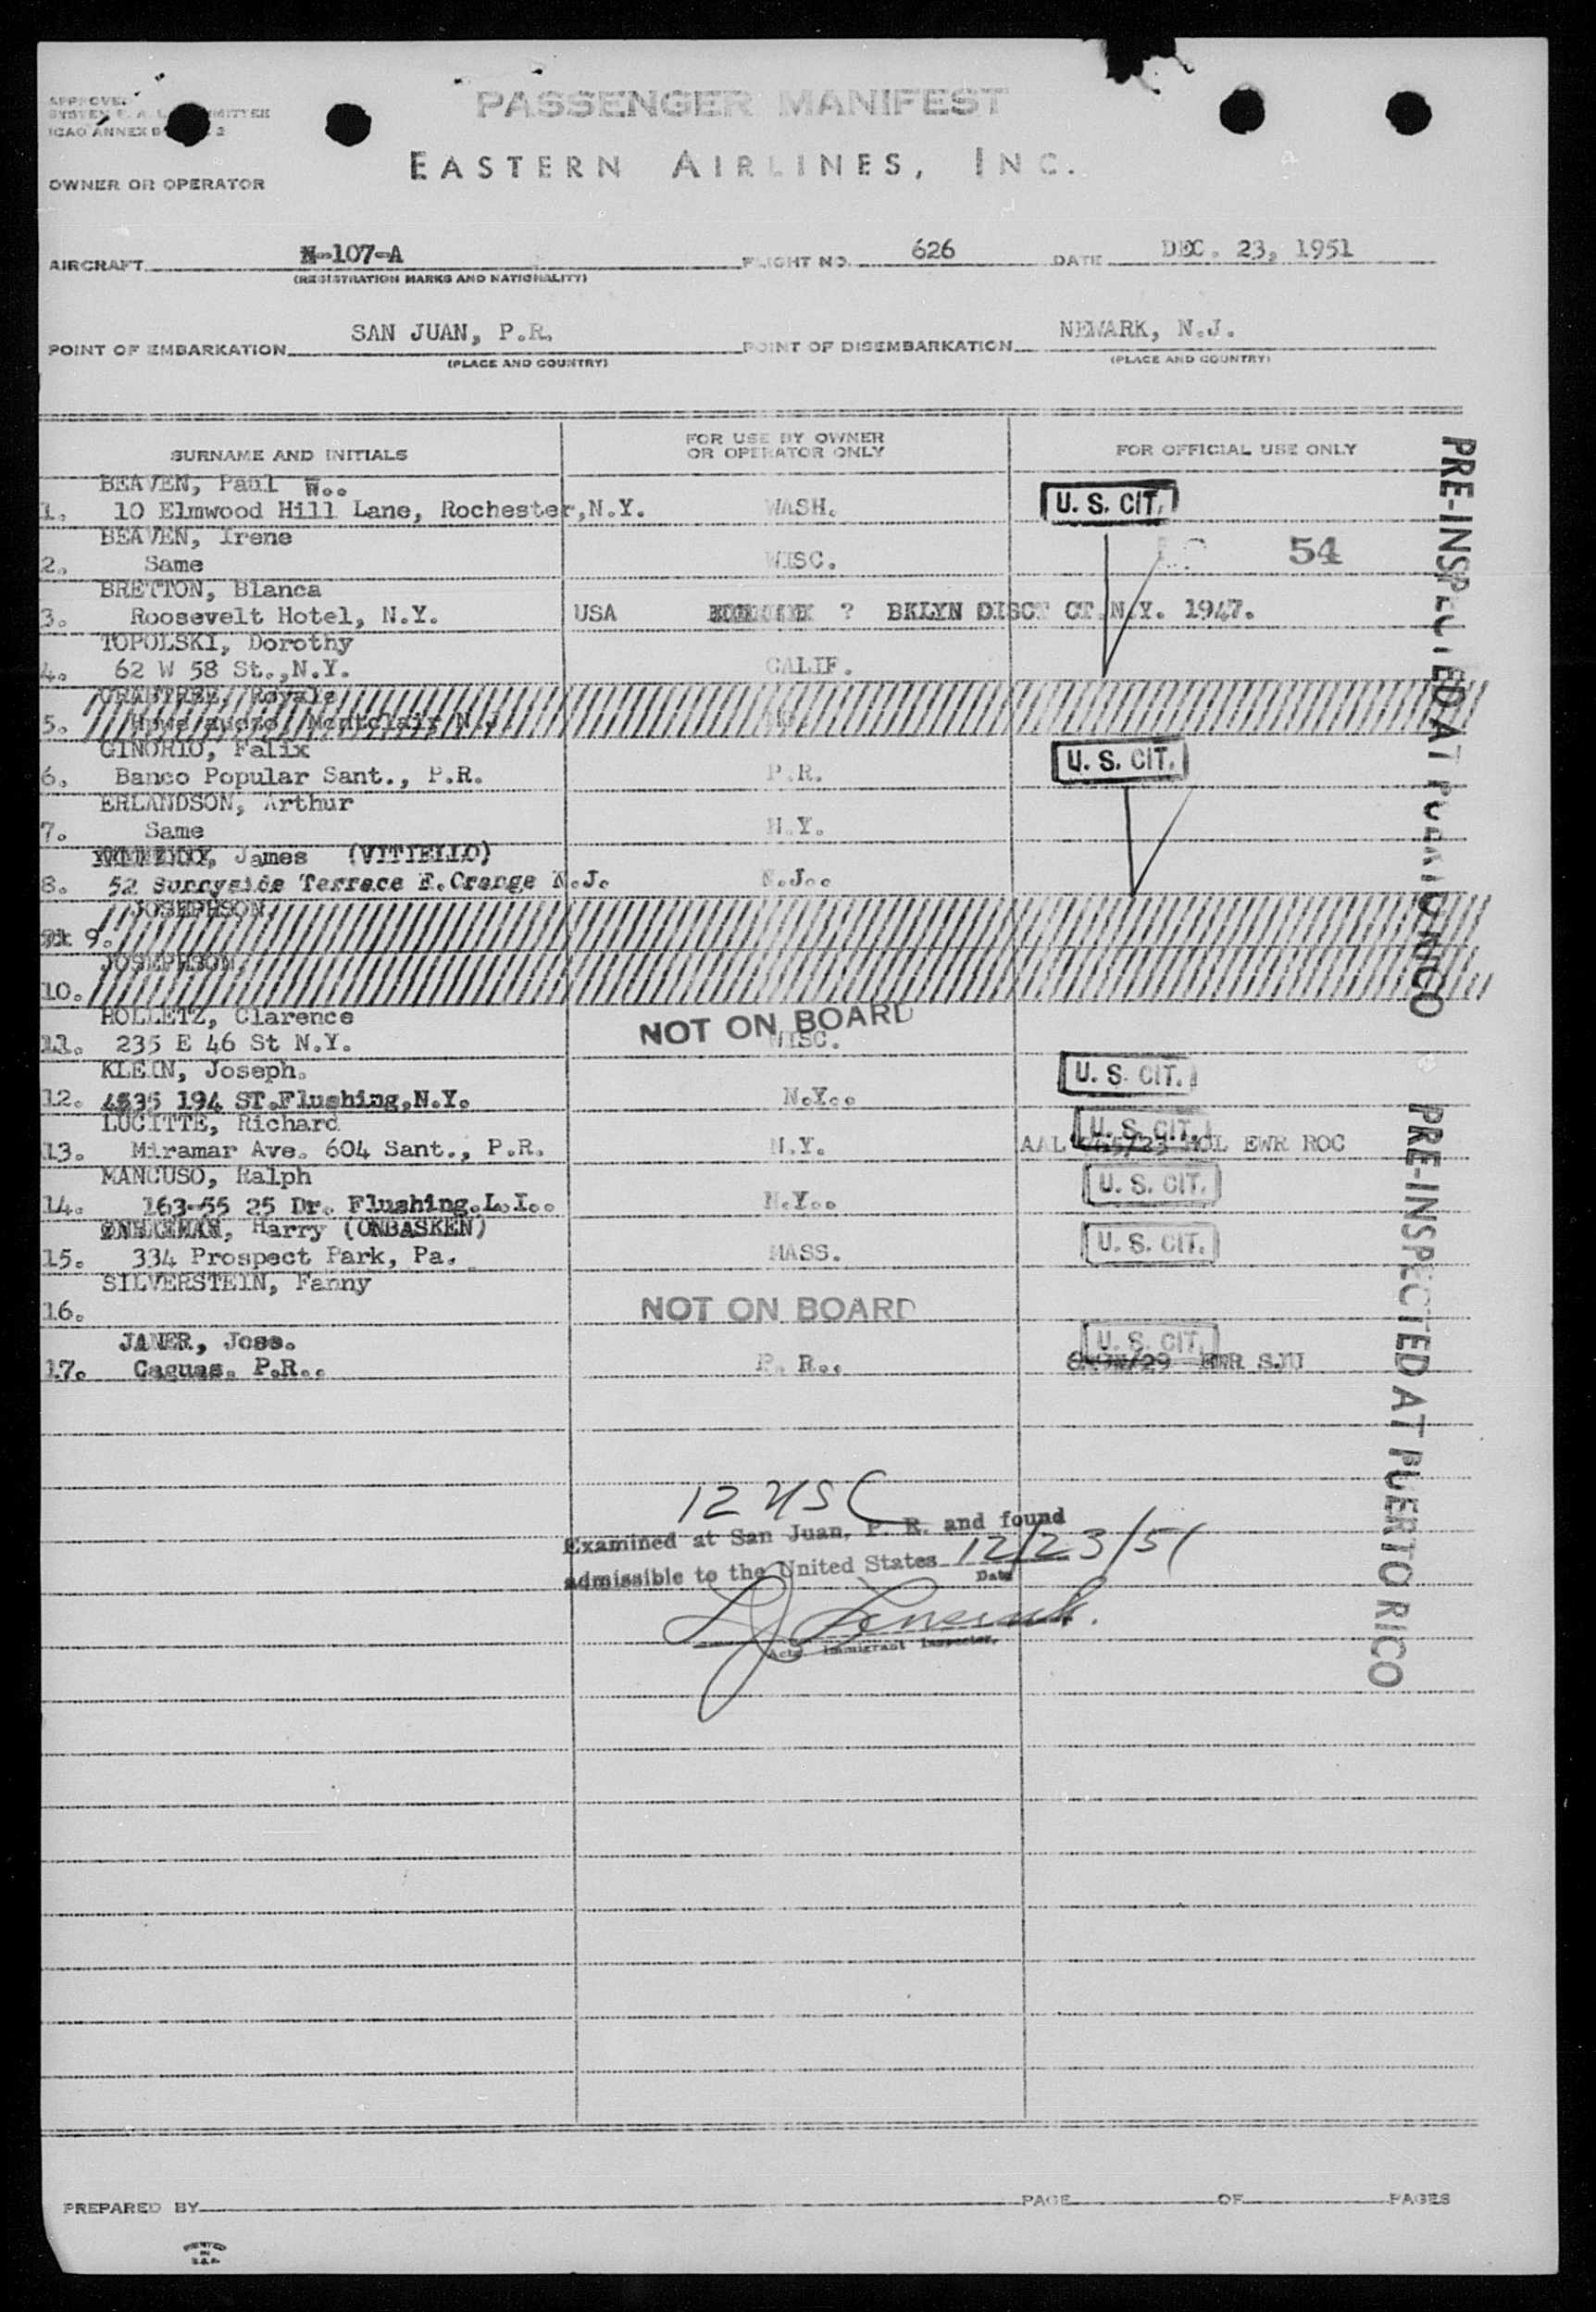 PASSENGER MANIFEST
ICAO ANNEX 2
EASTERN AIRLINES, INC.
OWNER OR OPERATOR
AIRCRAFT N-107-A FLIGHT NO. 626 DATE DEC. 23, 1951
(REGISTRATION MARKS AND NATIONALITY)
POINT OF EMBARKATION SAN JUAN, P.R. POINT OF DISEMBARKATION NEWARK, N.J.
(PLACE AND COUNTRY) (PLACE AND COUNTRY)
SURNAME AND INITIALS FOR USE BY OWNER OR OPERATOR ONLY FOR OFFICIAL USE ONLY
BEAVEN, Paul W..
1. 10 Elmwood Hill Lane, Rochester,N.Y. WASH. U. S. CIT.
BEAVEN, Irene
2. Same WISC. 54
BRETTON, Blanca
3. Roosevelt Hotel, N.Y. USA ? BKLYN DISCT CT N.Y. 1947.
TOPOLSKI, Dorothy
4. 62 W 58 St.,N.Y. CALIF.
CRABTREE, Royale
5. Montclair N.J
GINORIO, Falix
6. Banco Popular Sant., P.R. P.R. U. S. CIT.
ERLANDSON, Arthur
7. Same N.Y.
James (VITIELLO)
8. 52 Sunnyside Terrace E.Orange N.J. N.J..
JOSEPHSON,
9.
JOSEPHSON,
10.
HOLLETZ, Clarence
11. 235 E 46 St N.Y. NOT ON BOARD WISC.
KLEIN, Joseph.
12. 4535 194 ST.Flushing.N.Y. N.Y.. U. S. CIT.
LUCITTE, Richard
13. Miramar Ave. 604 Sant., P.R. N.Y. AAL U. S. CIT. EWR ROC
MANCUSO, Ralph
14. 163-55 25 Dr. Flushing.L.I.. N.Y.. U. S. CIT.
Harry (ONBASKEN)
15. 334 Prospect Park, Pa. MASS. U. S. CIT.
SILVERSTEIN, Fanny
16. NOT ON BOARD
JANER, Jose.
17. Caguas. P.R.. P. R.. U. S. CIT. EWR SJU
12 USC
Examined at San Juan, P. R. and found
admissible to the United States 12/23/51
Date
Immigrant Inspector.
PRE-INSPECTED AT PUERTO RICO
PRE-INSPECTED AT PUERTO RICO
PREPARED BY PAGE OF PAGES
PRINTED
IN
U.S.A.